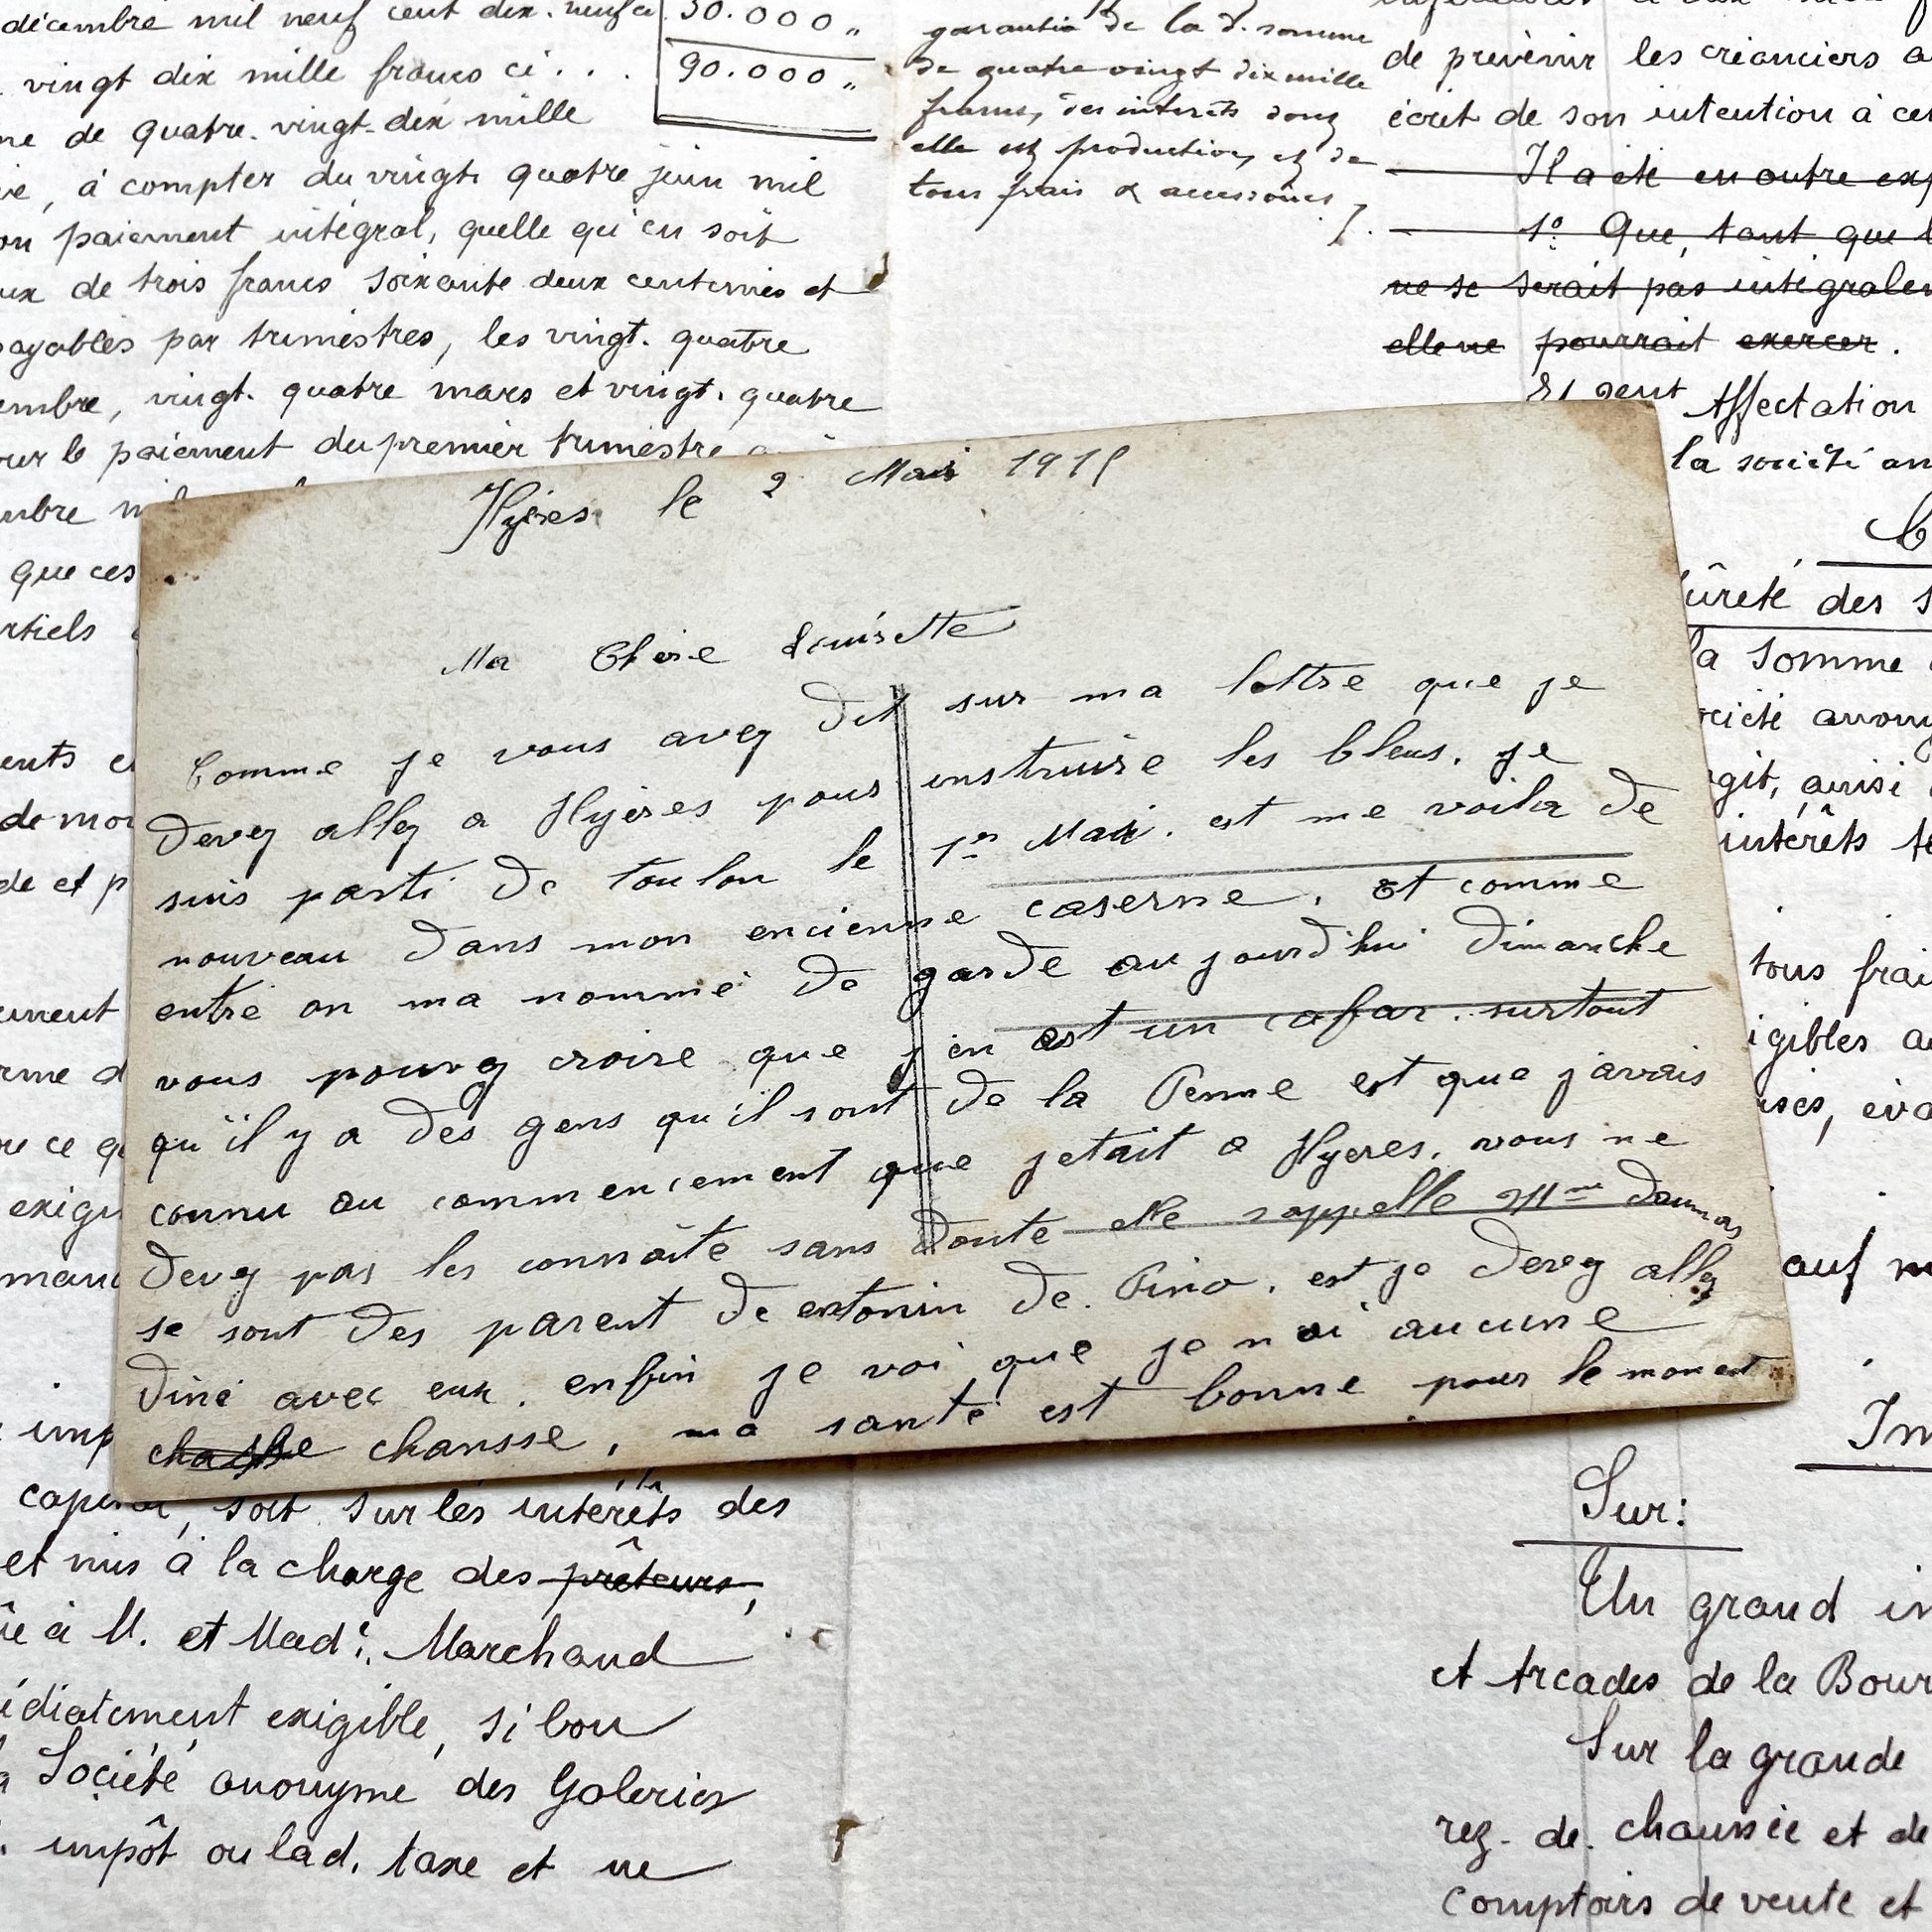 décembre mil neuf cent dix. neuf ci 30.000 „
vingt dix mille francs ci . . . 90.000 „
de quatre. vingt-dix mille
, à compter du vingt quatre juin mil
paiement intégral, quelle qu'en soit
de trois francs soixante deux centimes et
payables par trimestres, les vingt. quatre
embre, vingt. quatre mars et vingt. quatre
le paiement du premier trimestre
que ces
rtiels
ents
de mo
de et p
ument
rme d
ce q
exigi
manc
imp
capital, soit sur les intérêts des
et mis à la charge des prêteurs,
à M. et Mad. Marchand
édiatement exigible, si bon
Société anonyme des Galeries
impôt ou lad. taxe et ne
garantie de la d. somme
de quatre vingt dix mille
francs, des intérêts dont
elle est productive, et de
tous frais & accessoires
de prévenir les créanciers
écrit de son intention à ce
Il a été en outre exp
1º Que, tant que
ne se serait pas intégralem
elle ne pourrait exercer.
Affectation
la société an
ûreté des s
la somme
ociété anony
git, ainsi
intérêts
tous frai
igibles
auf
Sur:
Un grand
et Arcades de la Bour
Sur la grande
rez-de-chaussée et de
comptoirs de vente et
Hyères le 2 Mai 191
Ma Chère Louisette
Comme je vous avez dit sur ma lettre que je
devez allez a Hyères pour instruire les bleus. je
suis parti de toulon le 1er Mai. est me voila de
nouveau dans mon encienne caserne, et comme
entré on ma nommé de garde aujourd'hui dimanche
vous pouvez croire que j'en est un cafar. surtout
qu'il y a des gens qu'il sont de la Penne est que j'avais
connu au commencement que jetait a Hyeres. vous ne
devez pas les connaîte sans doute elle sappelle Mme Daumas
se sont des parent de entonin de Pino. est je devez allez
diné avec eux. enfin je voi que je n'ai aucune
chansse, ma santé est bonne pour le moment